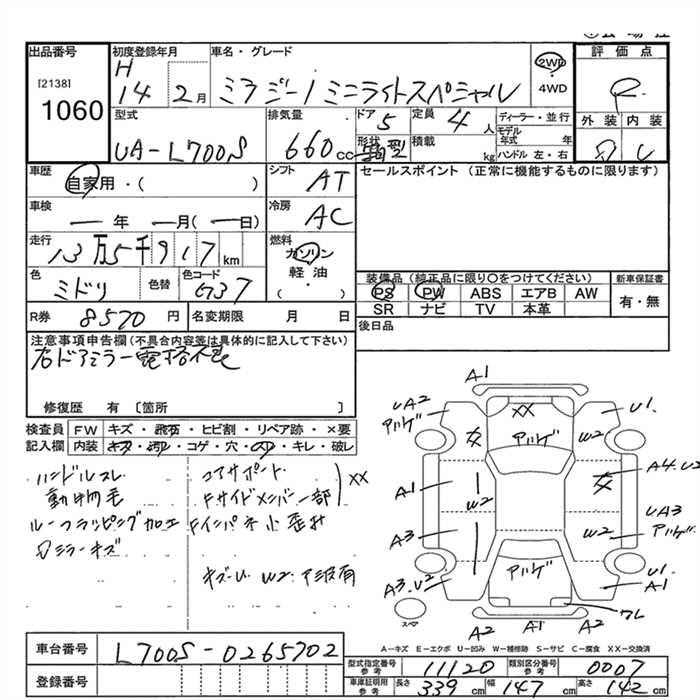 出品番号
[2138]
1060
初度登録年月
H
14 2月
車名・グレード
ミラジーノ ミニライトスペシャル
2WD
4WD
評価点
R
外装 内装
型式
UA-L700S
排気量
660 cc
ドア 5
形状
定員 4 人
積載 kg
ディーラー・並行
モデル年式 年
ハンドル 左・右
車歴
自家用・( )
シフト AT
セールスポイント (正常に機能するものに限ります)
車検
年 月 (日)
冷房 AC
走行
13万5千917km
燃料
ガソリン
軽油
・( )
色 ミドリ
色替
色コード G37
装備品(純正品に限り○をつけてください)
新車保証書
PS PW ABS エアB AW
SR ナビ TV 本革
有・無
R券 8570円
名変期限 月 日
後日品
注意事項申告欄(不具合内容等は具体的に記入して下さい)
右ドアミラー電格不良
修復歴 有 [箇所 ]
検査員 FW キズ・飛石・ヒビ割・リペア跡・×要
記入欄 内装 キズ・汚れ・コゲ・穴・スリ・キレ・破レ
ハンドルスレ
動物毛
ルーフラッピング加工
コアサポート
Fサイドメンバー一部
XX
Fインパネ小歪み
キズ・U W2・
A1
UA2
アルゲ
XX
アルゲ
U1
W2
A1
W2
A4.U2
A3
W2
UA3
アルゲ
A3.U2
アルゲ
U1
A1
スペア
A2
A1
A2
ワレ
A-キズ E-エクボ U-凹み W-補修跡 S-サビ C-腐食 XX-交換済
車台番号 L700S-0265702
登録番号
型式指定番号 参考 11120
類別区分番号 参考 0007
車庫証明用 参考 長さ 339cm 幅 147cm 高さ 142cm